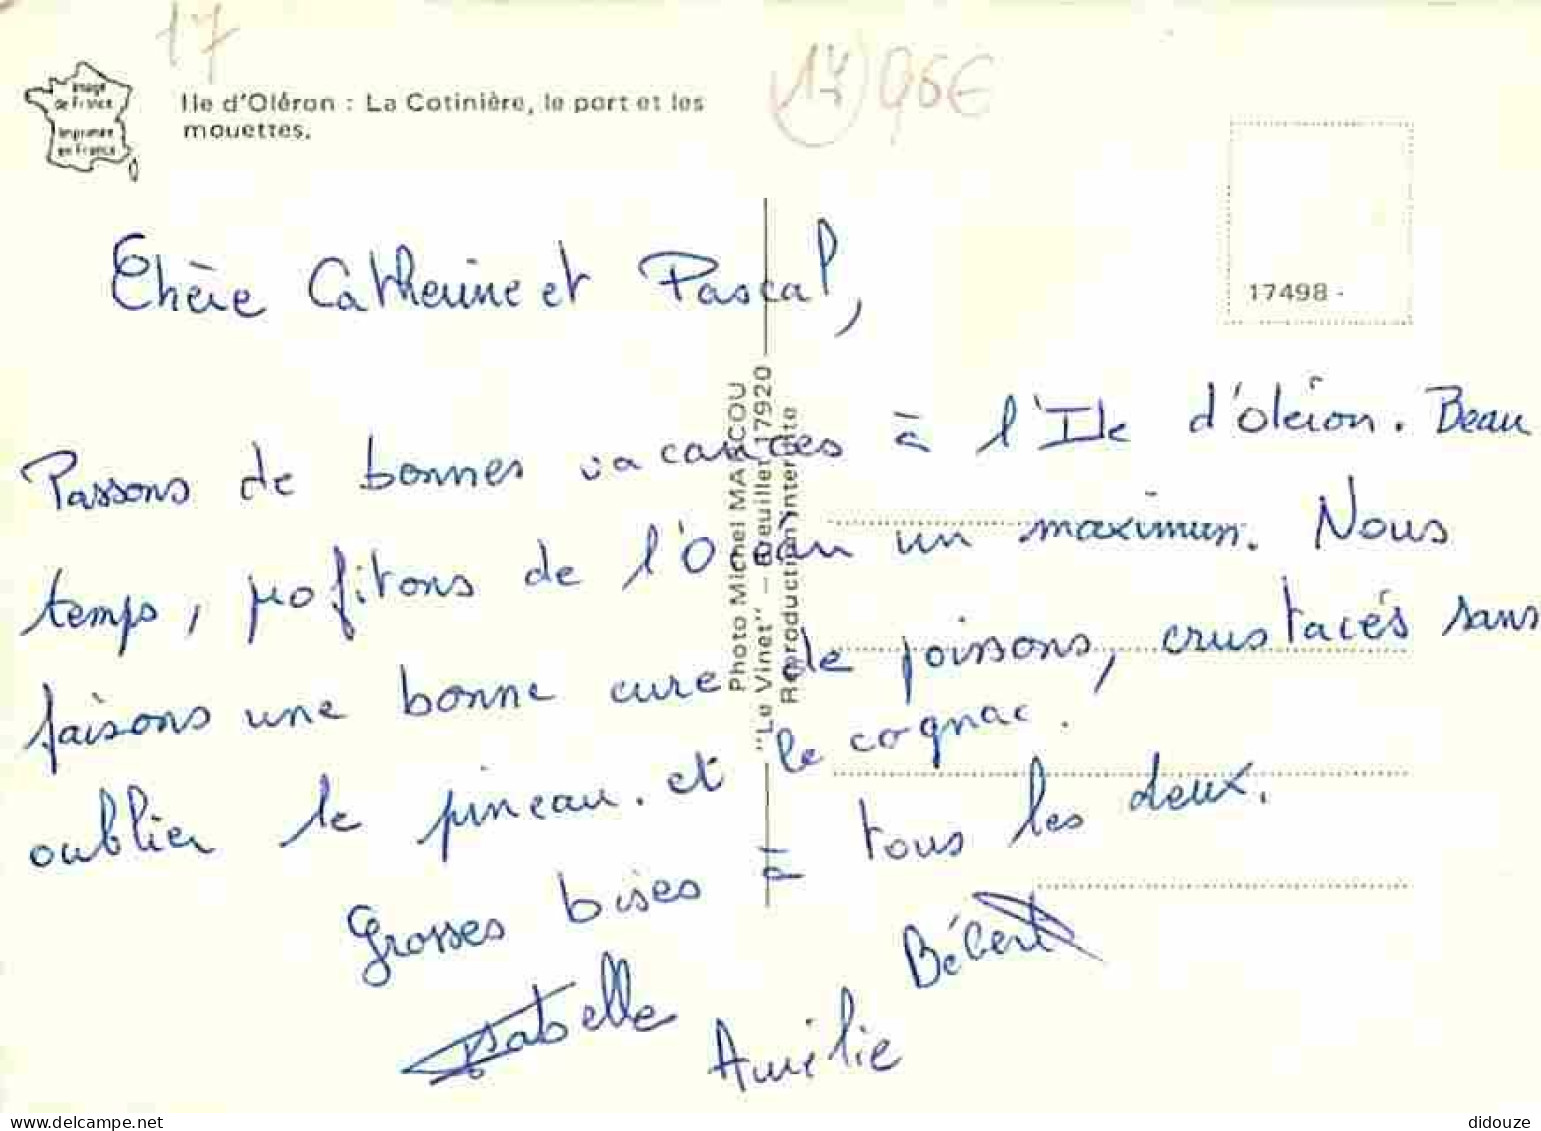 17
Image
de France
Imprimée
en France
Ile d'Oléron : La Cotinière, le port et les
mouettes.
17498 -
Chère Catherine et Pascal,
Passons de bonnes vacances à l'Ile d'Oléron. Beau
temps, profitons de l'Océan un maximum. Nous
faisons une bonne cure de poissons, crustacés sans
oublier le pineau. et le cognac.
Grosses bises à tous les deux.
Bébert
Isabelle
Aurélie
Photo Michel MARCOU
"Le Vinet" - Breuillet 17920
Reproduction interdite
delcampe.net
didouze